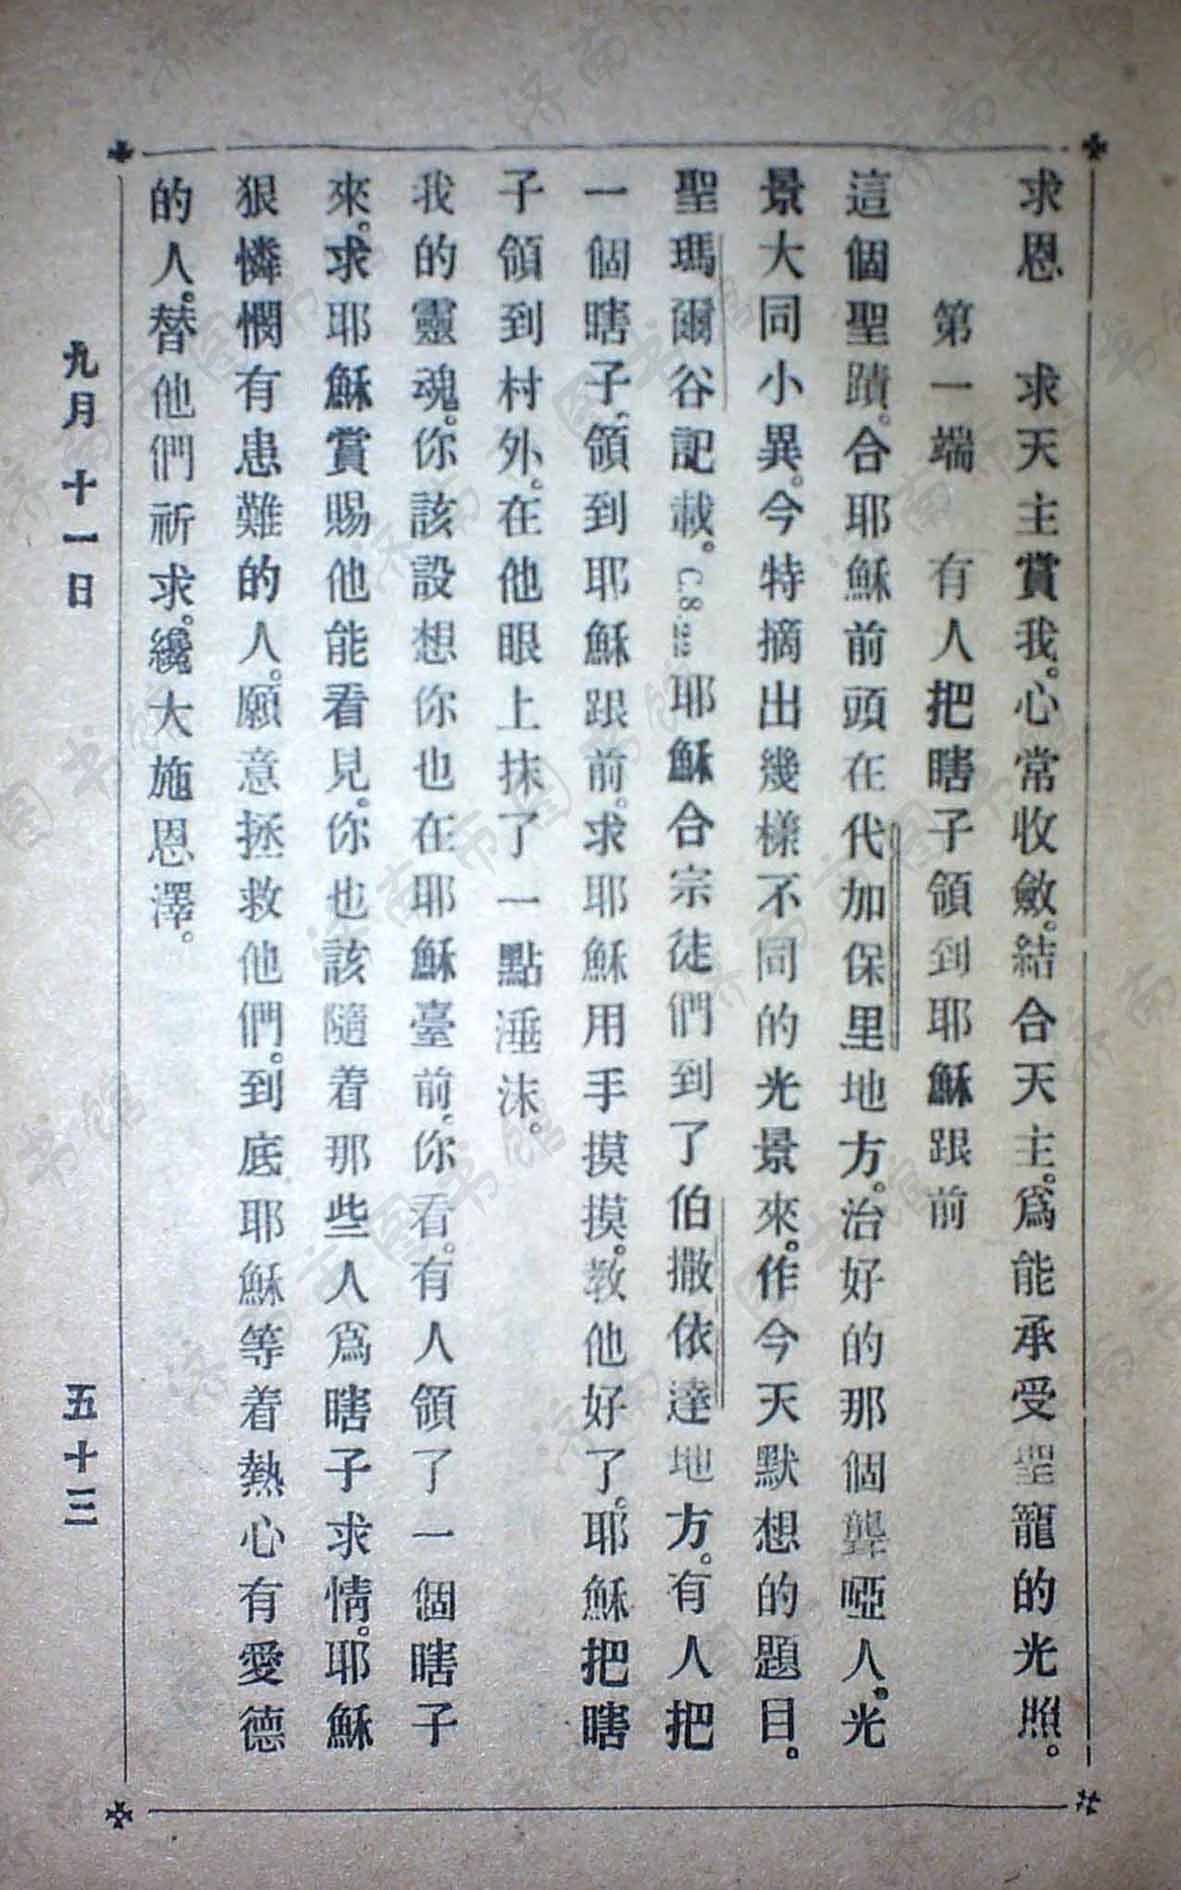 求恩　求天主賞我。心常收斂。結合天主。爲能承受聖寵的光照。
第一端　有人把瞎子領到耶穌跟前
這個聖蹟。合耶穌前頭在代加保里地方。治好的那個聾啞人。光
景大同小異。今特摘出幾樣不同的光景來。作今天默想的題目。
聖瑪爾谷記載。C.8.22耶穌合宗徒們到了伯撒依達地方。有人把
一個瞎子。領到耶穌跟前。求耶穌用手摸摸。教他好了。耶穌把瞎
子領到村外。在他眼上抹了一點涶沫。
我的靈魂。你該設想你也在耶穌臺前。你看。有人領了一個瞎子
來。求耶穌賞賜他能看見。你也該隨着那些人爲瞎子求情。耶穌
狠憐憫有患難的人。願意拯救他們。到底耶穌等着熱心有愛德
的人。替他們祈求。纔大施恩澤。
九月十一日
五十三
济南市图书馆